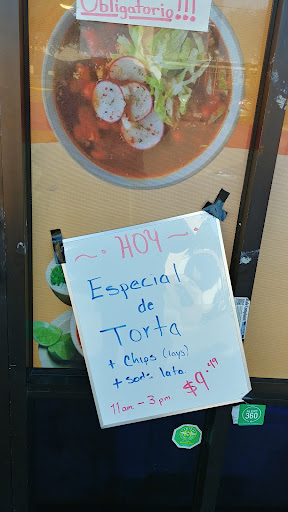 Obligatorio!!!
~• HOY ~•
Especial
de
Torta
+ Chips (lays)
+ soda lata
11am – 3 pm $9.49
360